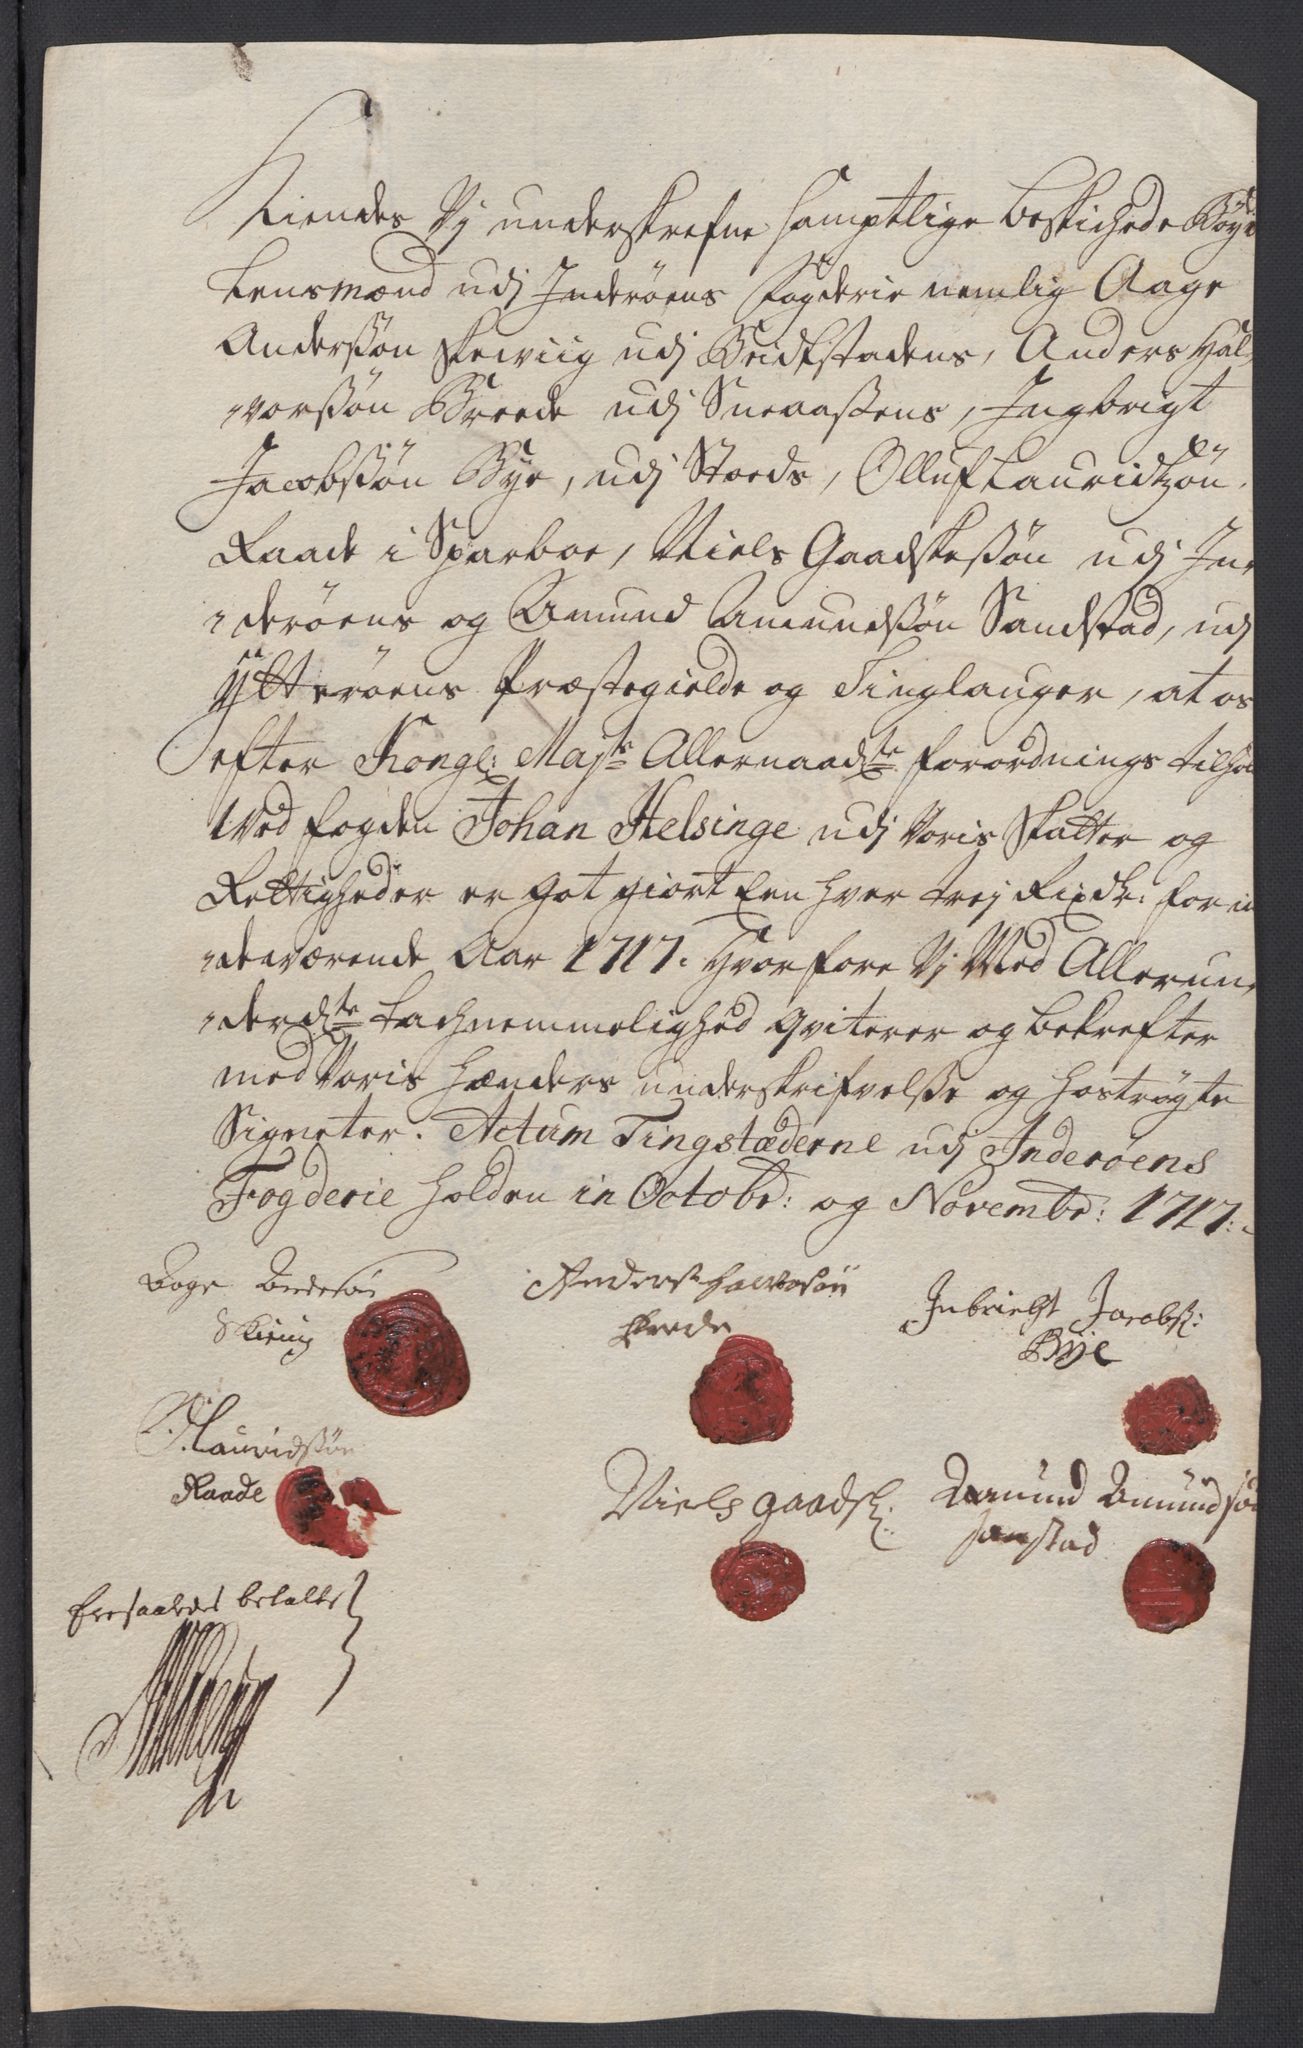 Kiendes Vj underskrefne samptlige beskichede Bøyde
Lensmænd udj Inderøens fogderie nemlig Aage
Anderssøn Skeviig udj Beidstadens, Anders Hal-
vorssøn Breede udj Sneaassens, Ingbrigt
Jacobssøn Bye, udj Stoeds, Olluf Lauridtzøn
Raade i Sparboe, Niels Gaadskessøn udj In-
derøens og Amund Amundssøn Sandstad, udj
Ytterøens Præstegielde og Tinglauger, at os
efter Kongl: Maj:ts Allernaad:te forordnings tilhold
Ved fogden Johan Helsinge udj voris Skatter og
Rettigheder er got giort Een hver trej Rixdr: for in-
deværende Aar 1717. Hvorfore Vj Med Allerun-
derd:te tachnemmelighed qviterer og bekrefter
med Voris hænders underskrifvelsse og hostrøgte
Signeter. Actum Tingstæderne udj Inderøens
Fogderie holden in Octobr: og Novembr: 1717:
Aage Andersøn
Skieuig
Anders Halvorsøn
Brede
Inbrieht Jacobs:
Bÿe
O: Lauridssøn
Raade
Niels Gaadsk:
Amund Amundsøn
Sanstad
Eresaaledes betalte